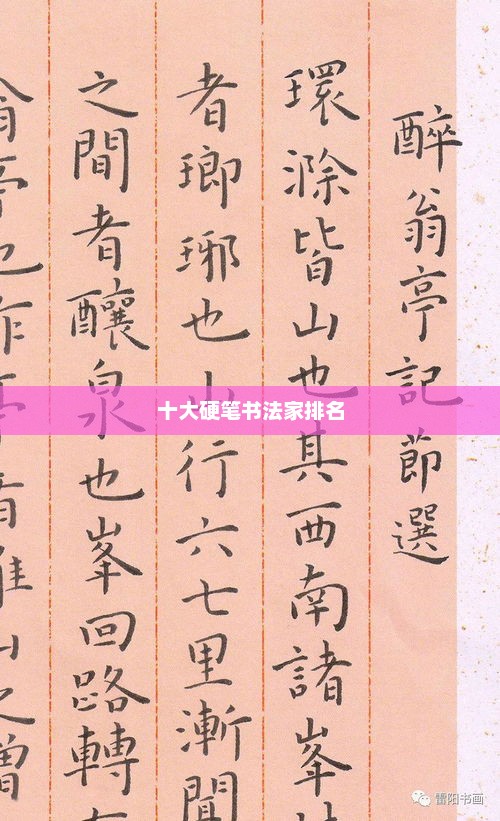 醉翁亭記節選
環滁皆山也其西南諸峯
者瑯琊也山行六七里漸聞
之間者釀泉也峯回路轉
翁亭也作亭
十大硬笔书法家排名
雷阳书画